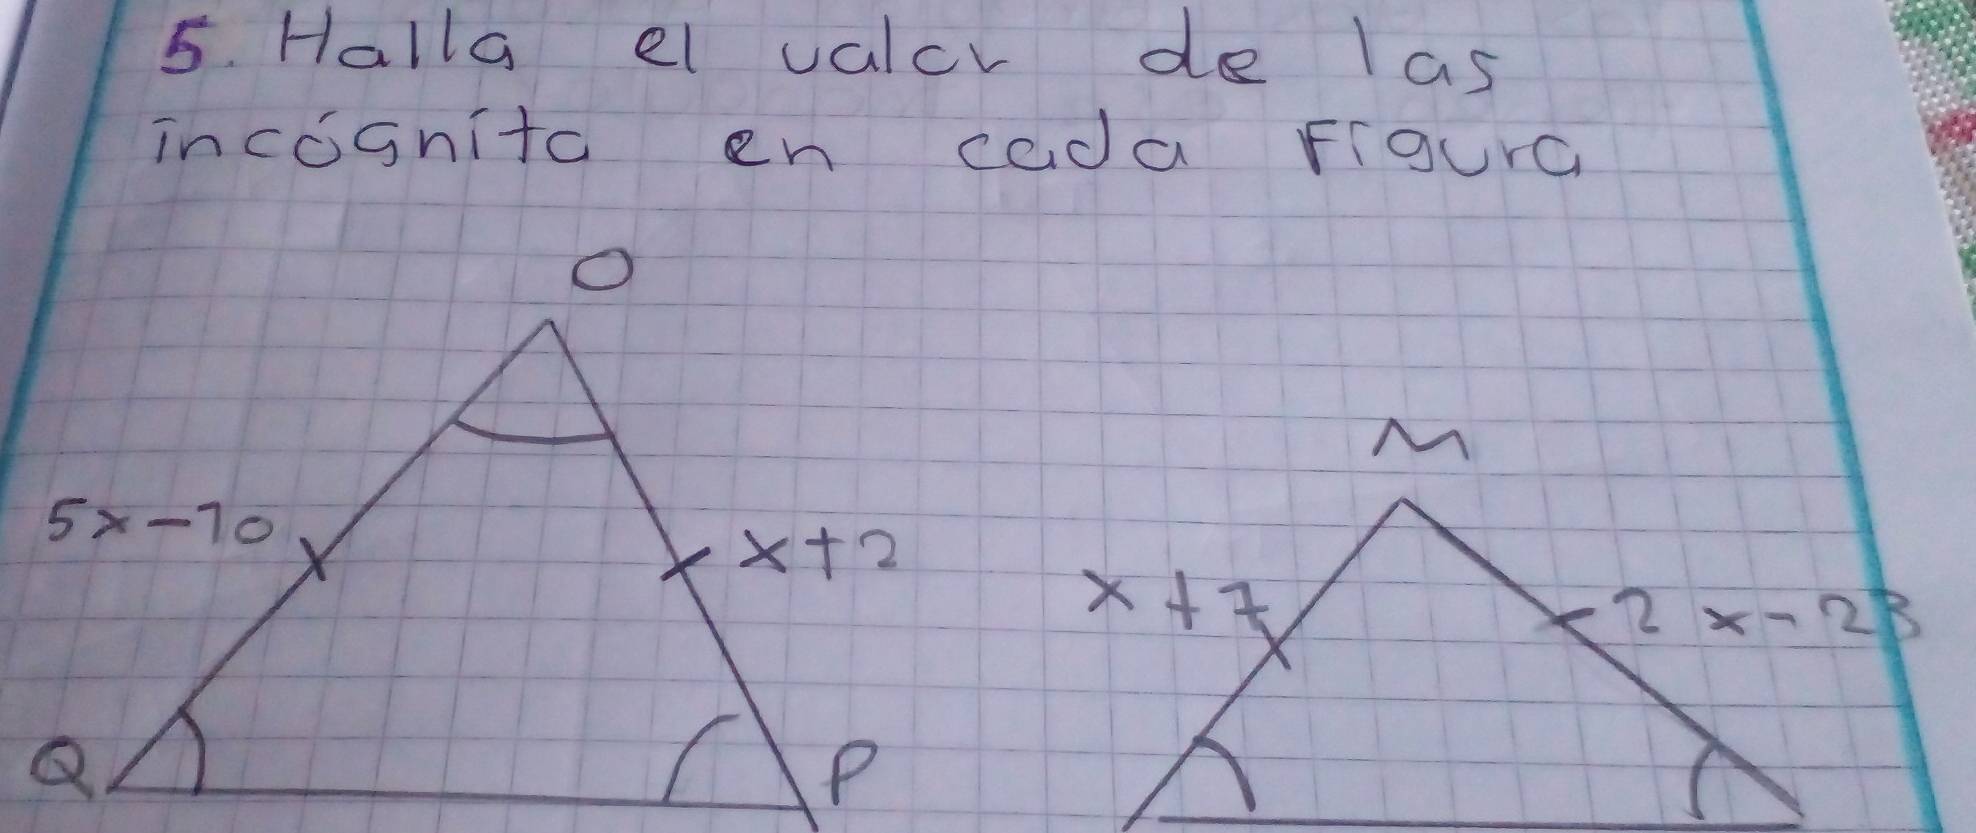 5. Halla el valor de las
incógnita en cada Figura
O
5x-10
x+2
Q
P
M
x+7
2x-23